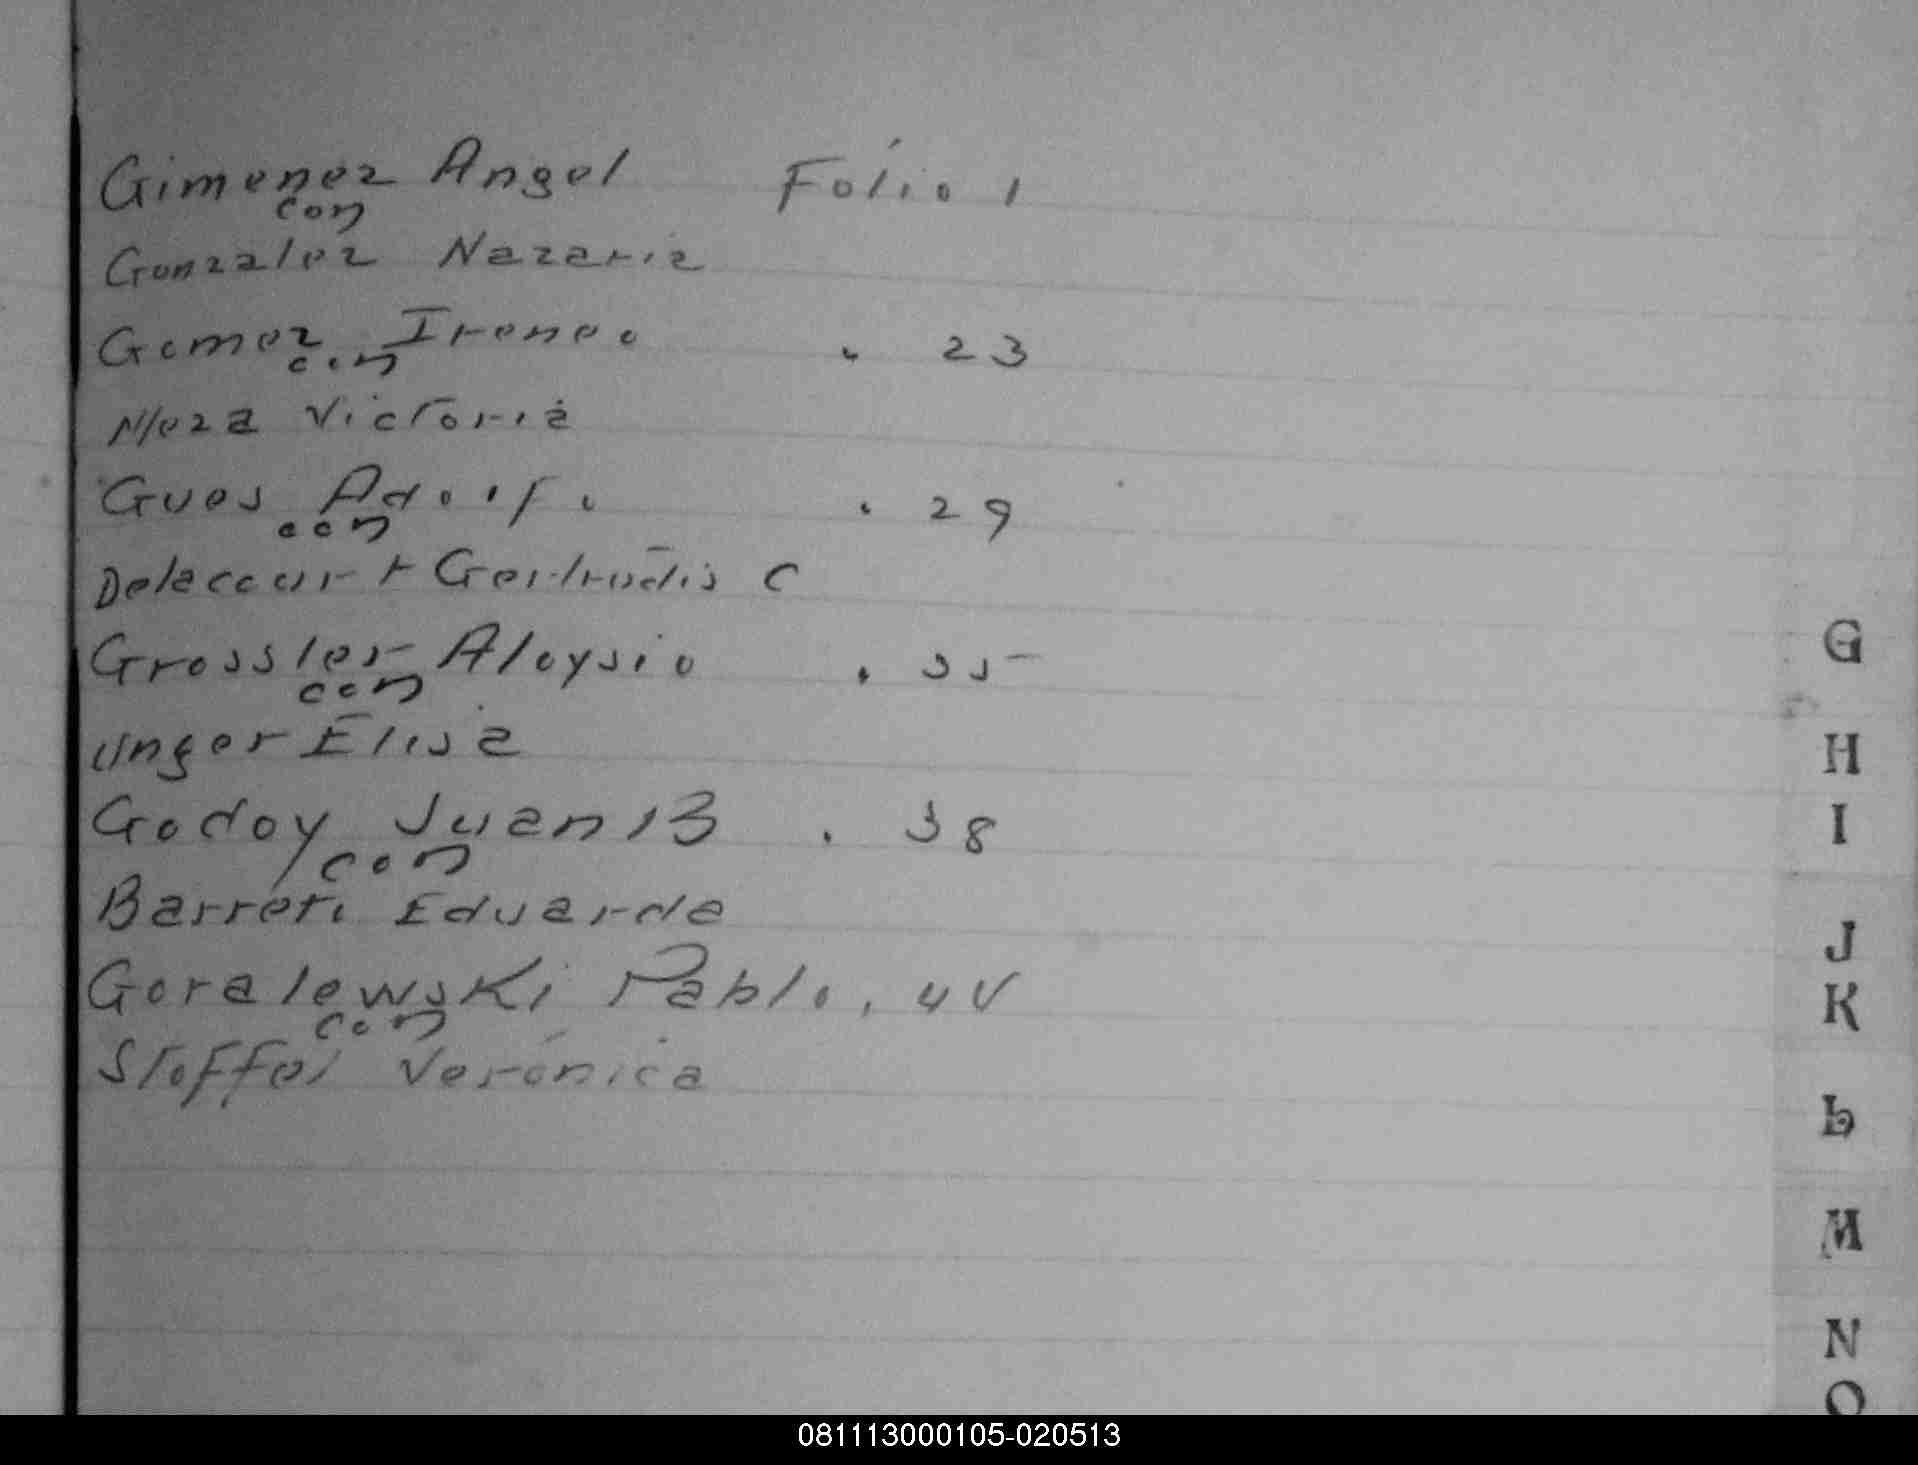 Gimenez Angel Fólio 1
con
Gonzalez Nazaria
Gomez Ireneo . 23
con
Meza Victoria
Gues Adolfo . 29
con
Delaccourt Gertrudis C
Grossler Aloysio . 35
con
Unger Elisa
Godoy Juan B . 38
con
Barreti Eduarda
Goralewski Pablo .
con
Stoffel Verónica
G
H
I
J
K
L
M
N
O
081113000105-020513